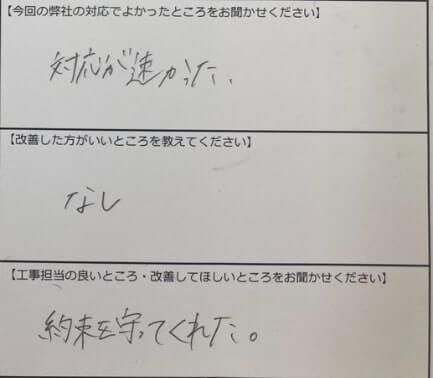 【今回の弊社の対応でよかったところをお聞かせください】
対応が速かった、
【改善した方がいいところを教えてください】
なし
【工事担当の良いところ・改善してほしいところをお聞かせください】
約束を守ってくれた。